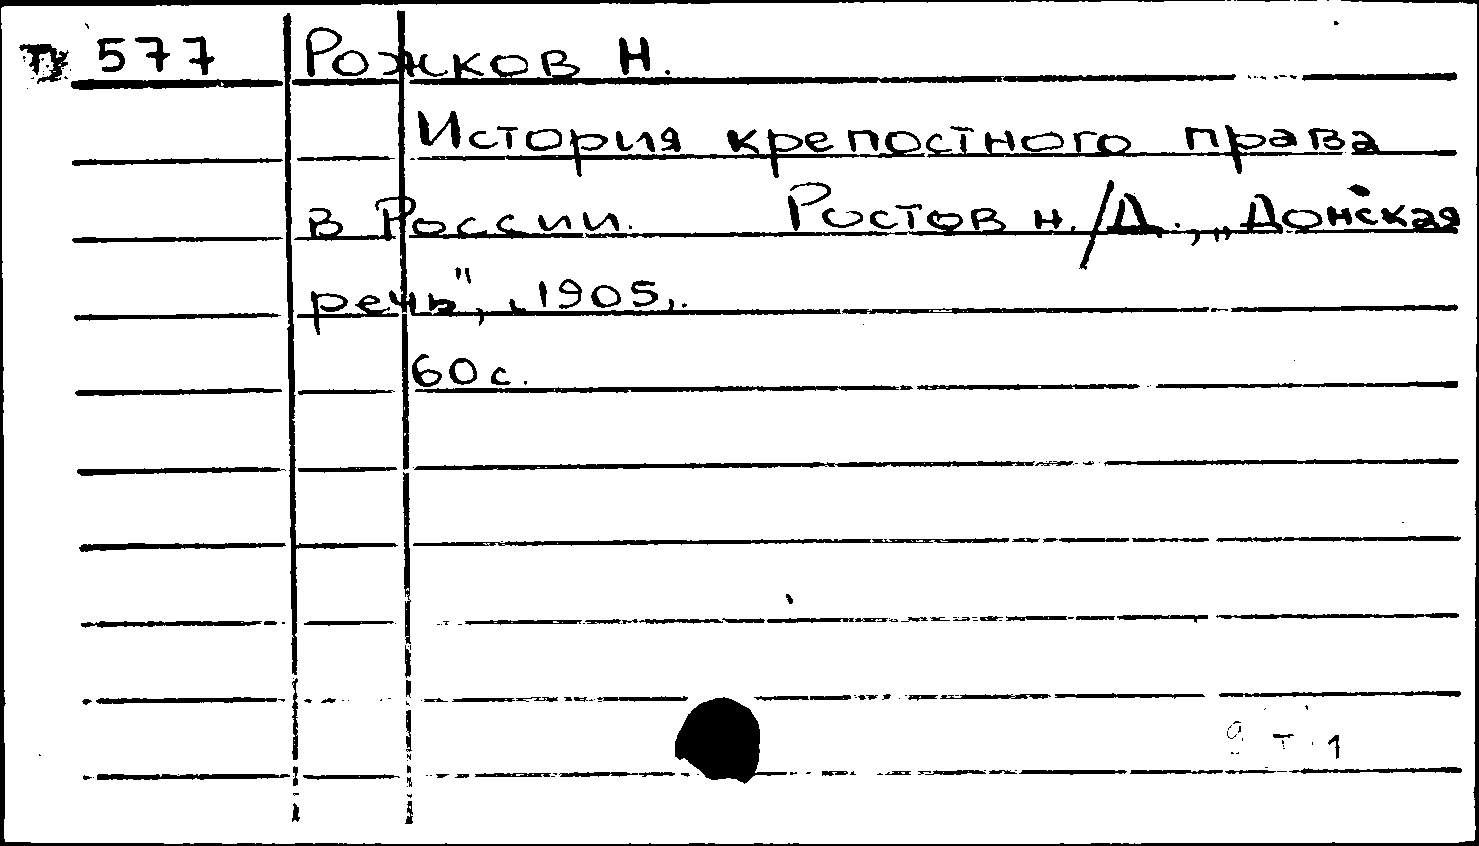 577 Рожков Н.
История крепостного права
в России. Ростов н./Д., „Донская
речь", 1905.
60 с.